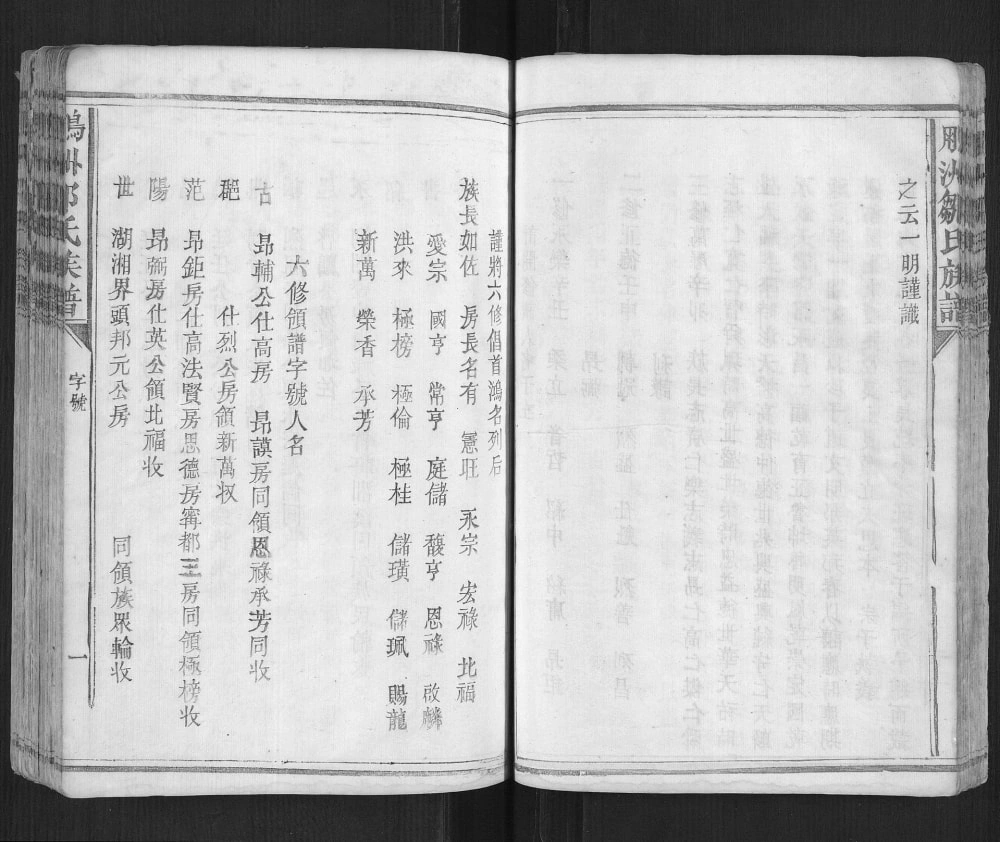 洲鄒氏族譜
之云一明謹識
謹將六修倡首鴻名列后
族長如佐 房長名有 憲旺 永宗 宏祿 北福
愛宗 國亨 常亨 庭儲 馥亨 恩祿 啟麟
洪來 極榜 極倫 極桂 儲璜 儲珮 賜龍
新萬 榮香 承芳
六修領譜字號人名
古 昂輔公仕高房 昂謨房同領恩祿承芳同收
郡 仕烈公房領新萬收
范 昂鉅房仕高法賢房思德房甯都三房同領極榜收
陽 昂衡房仕英公領北福收
世 湖湘界頭邦元公房 同領族眾輪收
氏族譜
字號
一